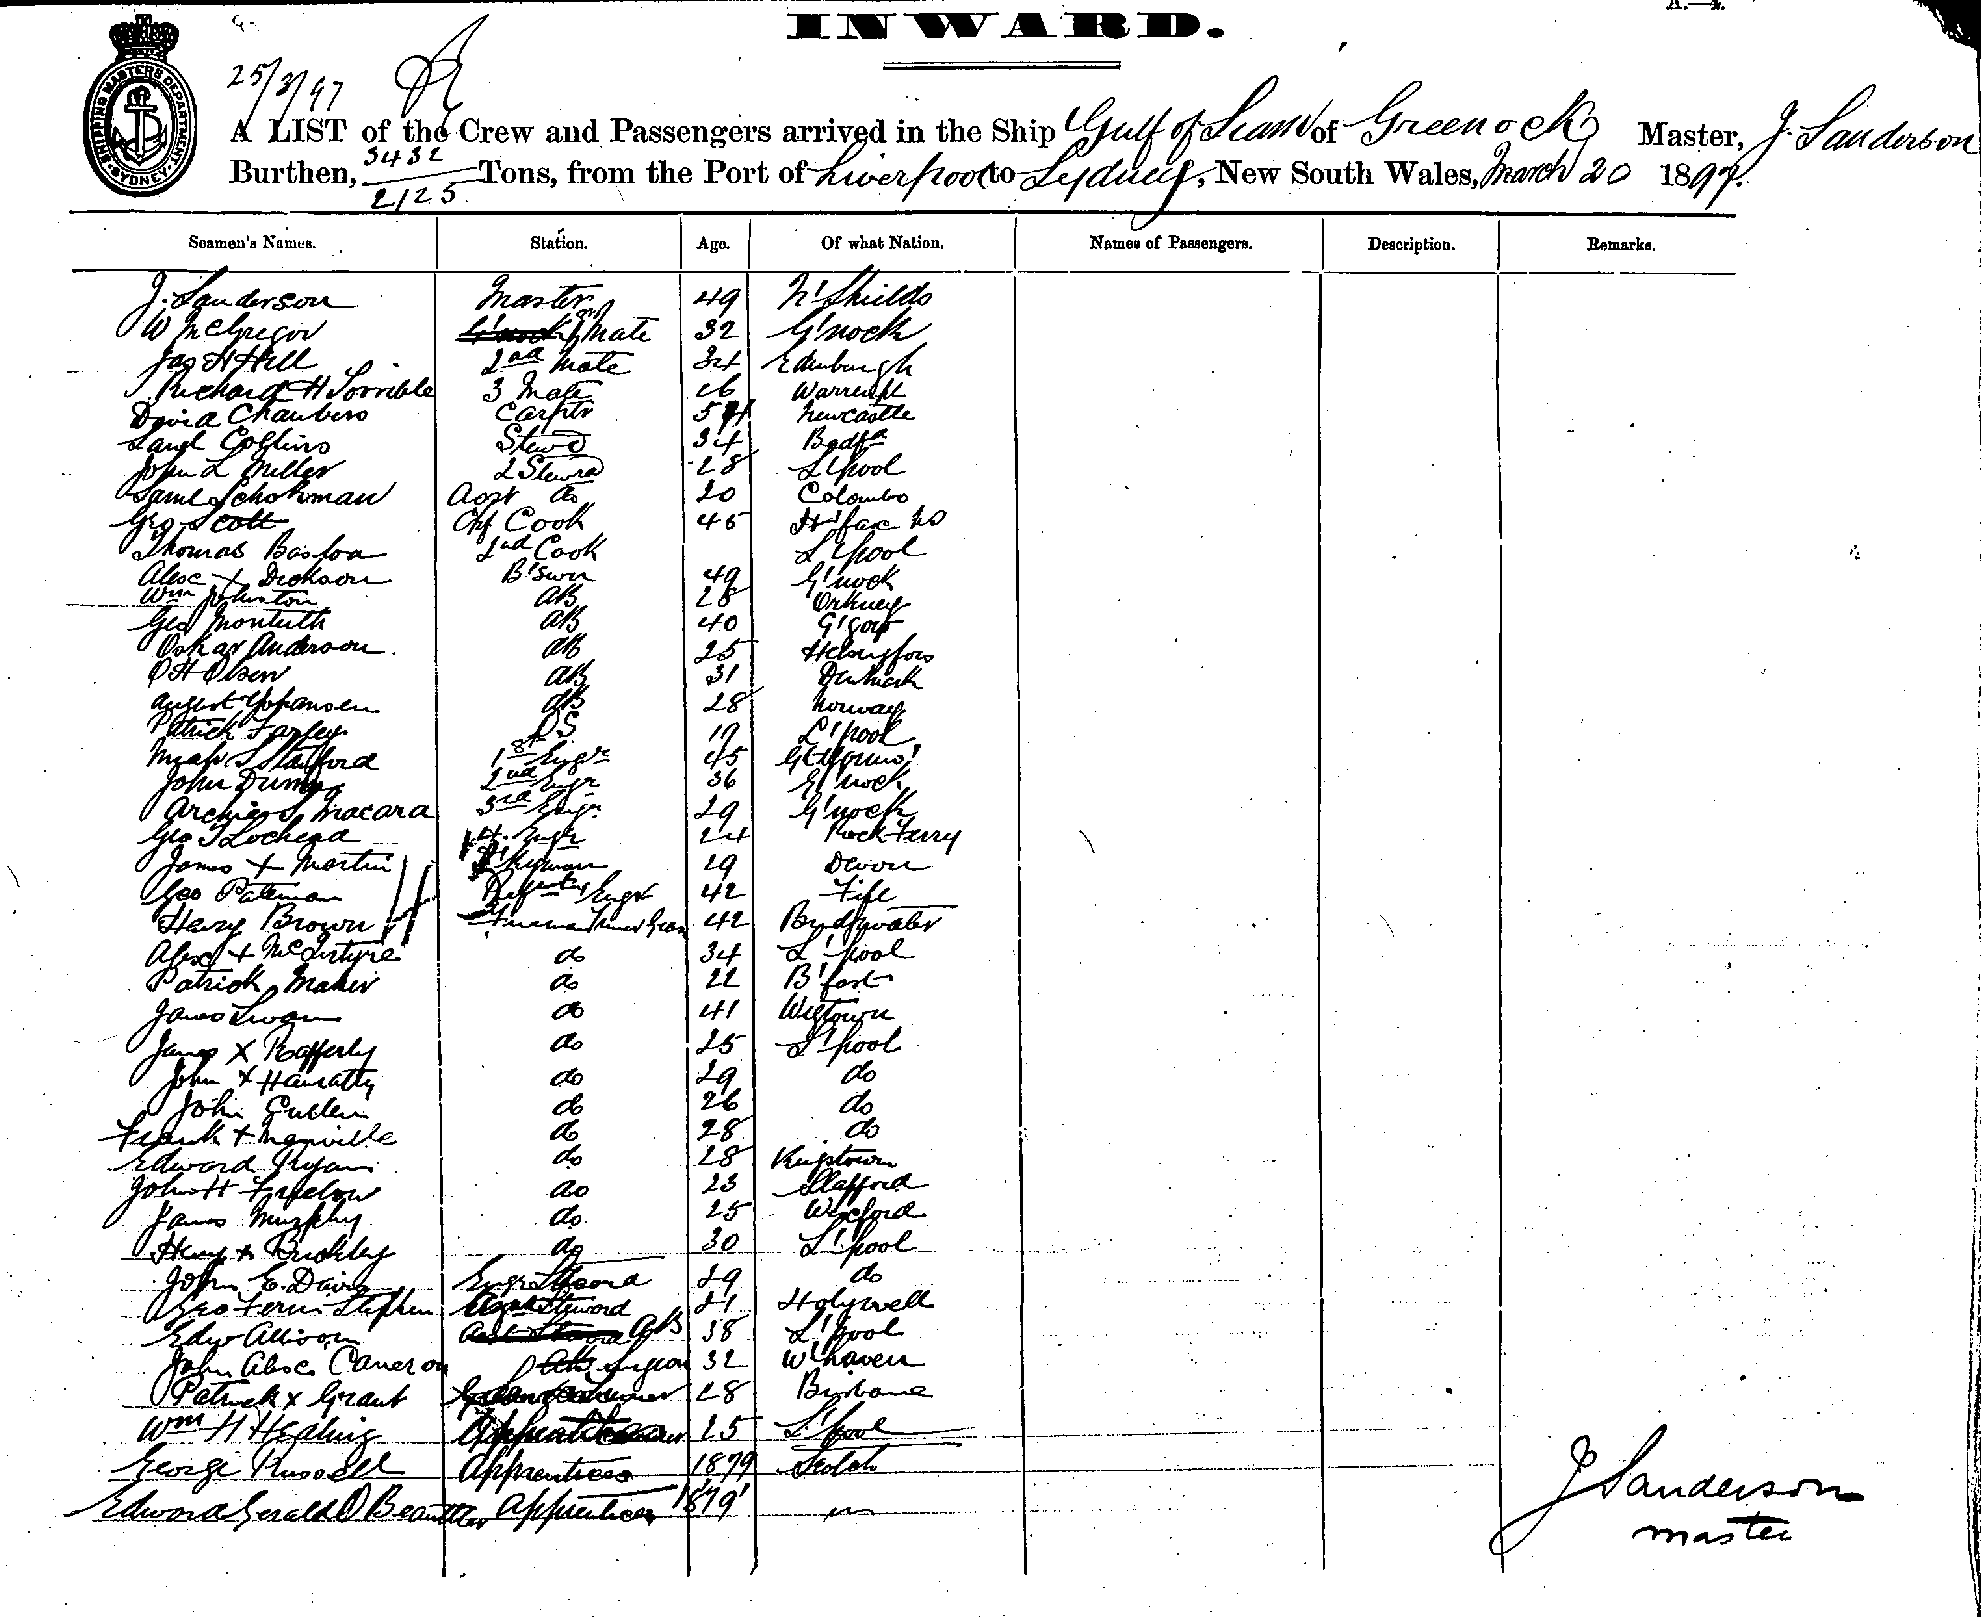 INWARD.
SHIPPING MASTERS DEPARTMENT
SYDNEY
25/3/97
A LIST of the Crew and Passengers arrived in the Ship Gulf of Siam of Greenock Master, J. Sanderson
Burthen, 3432 / 2125 Tons, from the Port of Liverpool to Sydney, New South Wales, March 20 1897.
Seamen's Names. Station. Age. Of what Nation. Names of Passengers. Description. Remarks.
J. Sanderson Master 49 N'Shields
W McGregor Mate 32 G'nock
Jas H Hill 2nd Mate 34 Edinburgh
Richard H Sorrible 3 Mate 26
David Chambers Carptr Newcastle
Saml Collins Stewd 34
John L Miller 2 Stewd 28 L'pool
Saml Schokman Asst do 20 Colombo
Geo Scott Chf Cook 45 H'fax NS
Thomas 2nd Cook L'pool
Alex x Dickson B'swn 49 G'nock
Wm Johnston AB 28 Orkney
Geo Monteith AB 40 G'gow
Oskar Anderson AB 25 Helsingfors
O H Olsen AB 31 Denmark
August Johansen AB 28 Norway
Patrick Farley OS 19 L'pool
Stafford 1st Engr 45
John Dunn 2nd Engr 36 G'nock
Archied Macara 3rd Engr 29 G'nock
Geo Lochead 4 Engr 24 Rock Ferry
James x Martin D'kyman 29 Devon
Geo Pateman Engr 42 Fife
Henry Brown Fireman 42 Bridgwater
Alexr + McIntyre do 34 L'pool
Patrick Maher do 22 B'fast
James Swan do 41 Wigtown
James x Rafferty do 25 L'pool
John x Hanratty do 29 do
John Cullen do 26 do
Frank + Manville do 28 do
Edward Ryan do 28 Kingstown
John H do 23 Stafford
James Murphy do 25 Wexford
Henry x Buckley do 30 L'pool
John E. Davis Engr Steward 29 do
Geo Stephen Steward 21 Holywell
Edw Allison AB 38 L'pool
John Alexr Cameron Surgeon 32 W'haven
Patrick x Grant 28 Brisbane
Wm H 25 L'pool
George Russell Apprentices 1879 Scotch
Edward Gerald Apprentices 1879 "
J Sanderson
Master